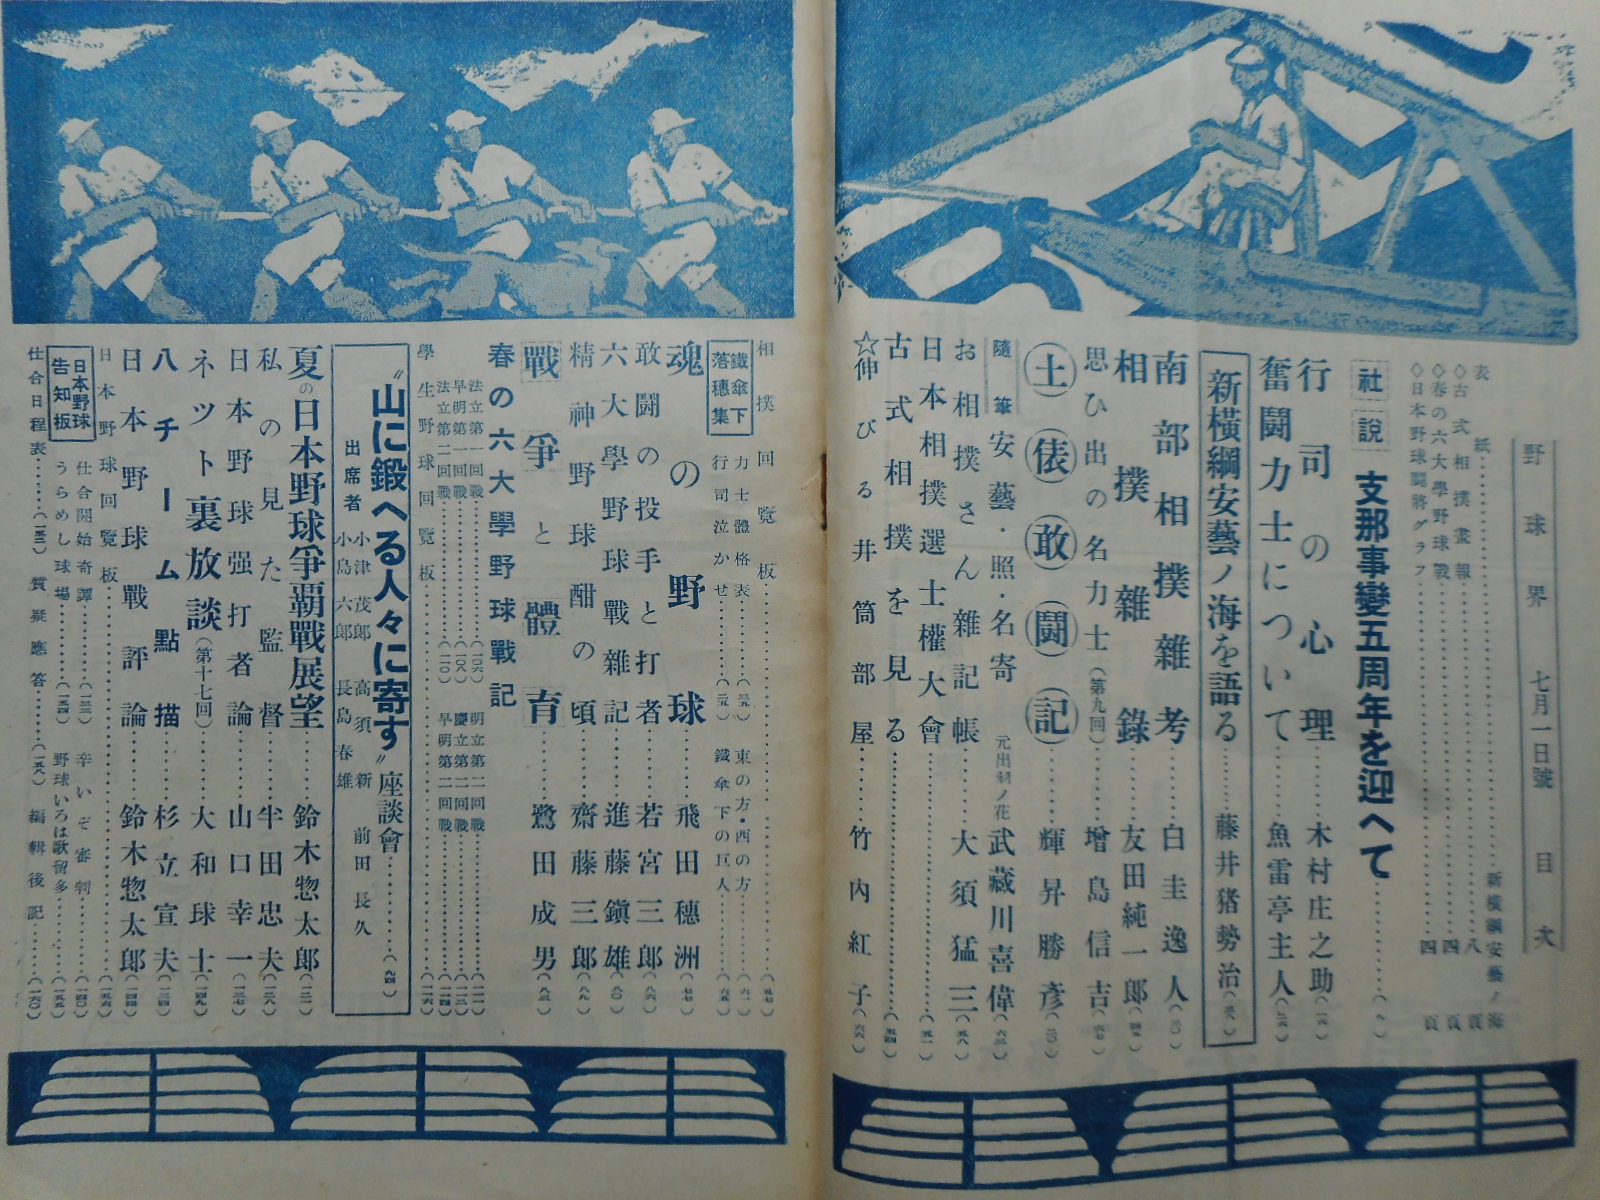 野球界 七月一日號 目次
表紙……新橫綱安藝ノ海
◇古式相撲畫報……八頁
◇春の六大學野球戰……四頁
◇日本野球鬪將グラフ……四頁
社說 支那事變五周年を迎へて
行司の心理……木村庄之助
奮鬪力士について……魚雷亭主人
新橫綱安藝ノ海を語る……藤井猪勢治
南部相撲雜考……白圭逸人
相撲雜錄……友田純一郎
思ひ出の名力士(第九回)……增島信吉
土俵敢鬪記……輝昇勝彥
隨筆 安藝・照・名寄 元出羽ノ花 武藏川喜偉
お相撲さん雜記帳……大須猛三
日本相撲選士權大會……(五一)
古式相撲を見る……(五四)
☆伸びる井筒部屋……竹內紅子(六六)
相撲回覽板……(五七)
鐵傘下落穗集
力士體格表……
東の方・西の方……(六一)
行司泣かせ……
鐵傘下の巨人……(六五)
魂の野球……飛田穗洲
敢鬪の投手と打者……若宮三郞(八六)
六大學野球戰雜記……進藤鎭雄(八〇)
精神野球酣の頃……齋藤三郞(八九)
戰爭と體育……鷺田成男(八三)
春の六大學野球戰記
法立第一回戰……(一〇六)
明立第二回戰……
早明第一回戰……(一〇八)
慶立第二回戰……
法立第二回戰……(一一〇)
早明第二回戰……
學生野球回覽板……(一二六)
〝山に鍛へる人々に寄す〟座談會……(九四)
出席者 小津茂郞 高須新 前田長久
小島六郞 長島春雄
夏の日本野球爭覇戰展望……鈴木惣太郞
私の見た監督……牛田忠夫
日本野球强打者論……山口幸一
ネツト裏放談(第十七回)……大和球士
八チーム點描……杉立宣夫
日本野球戰評論……鈴木惣太郞
日本野球回覽板……
日本野球告知板
仕合開始奇譚……
辛いぞ審判……(一四〇)
うらめし球場……
野球いろは歌留多……
仕合日程表……
質疑應答……
編輯後記……(一六〇)